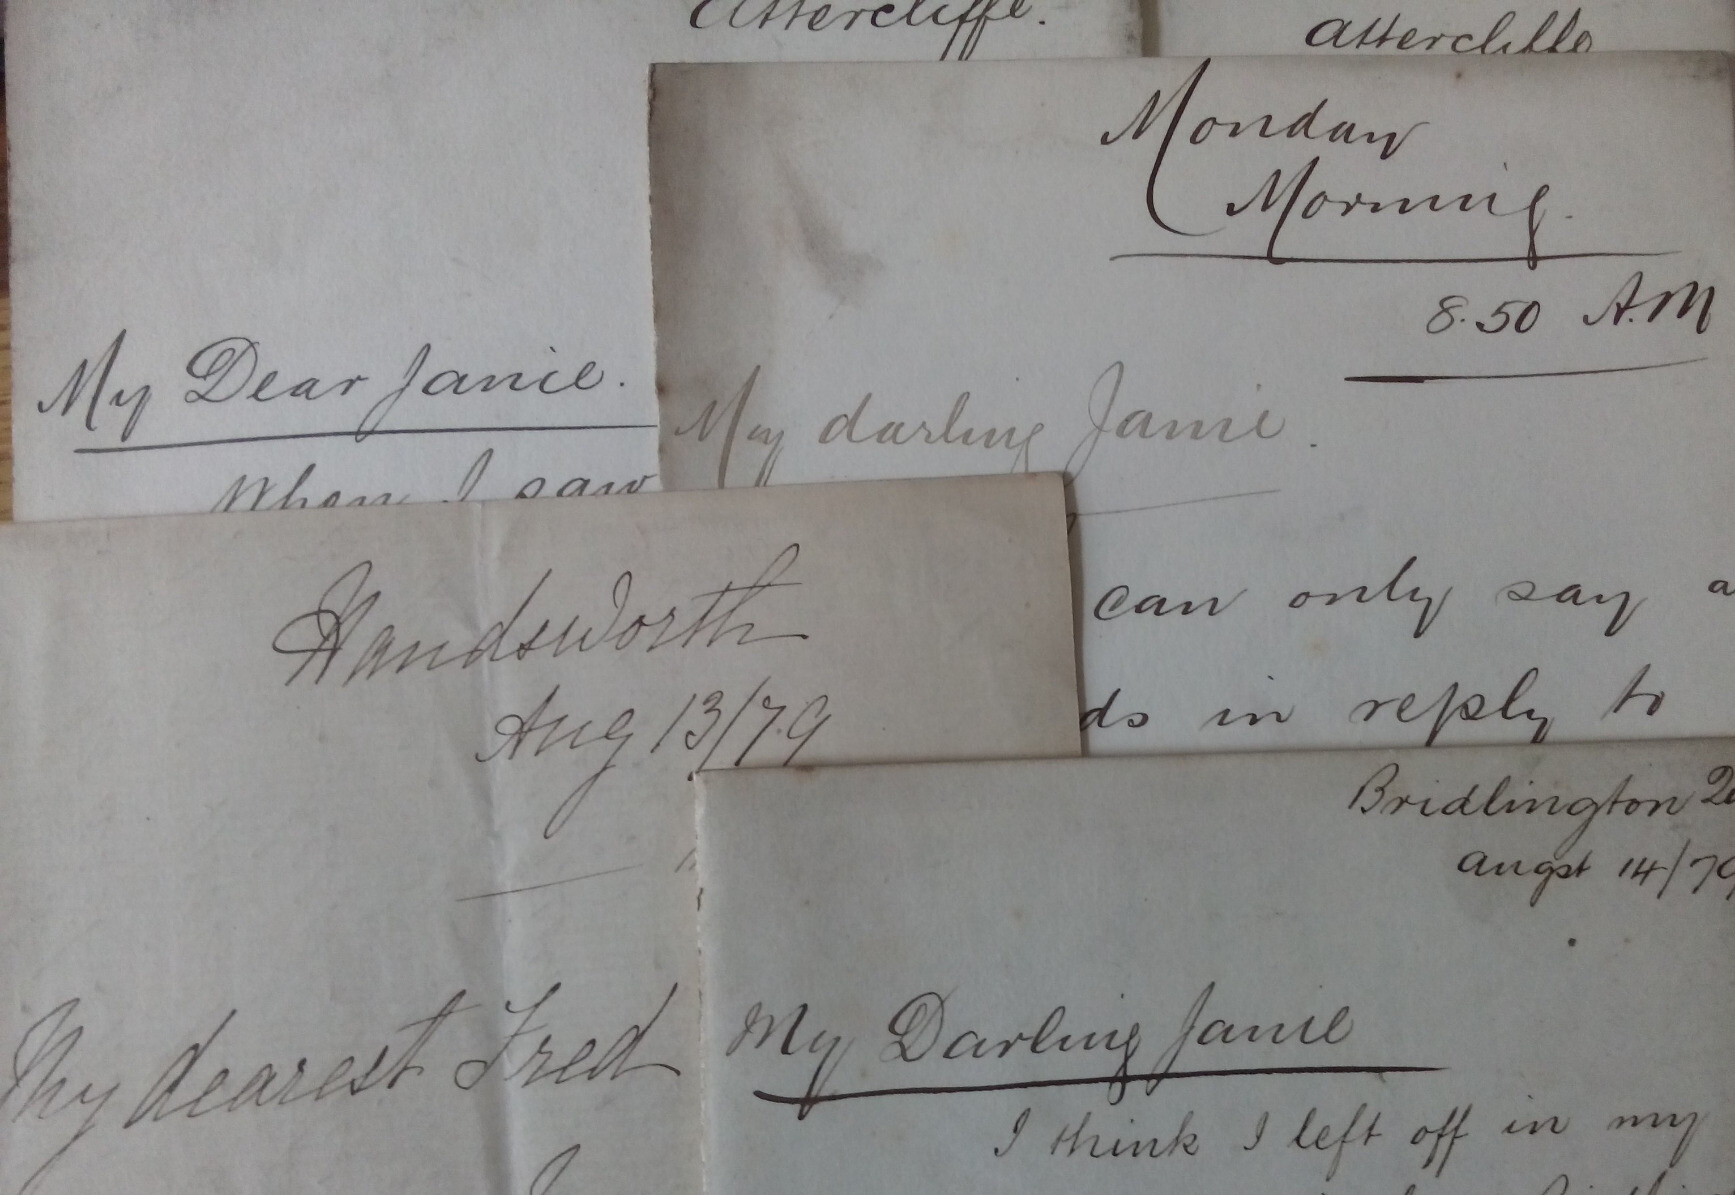 Attercliffe.
Attercliffe
My Dear Janie.
When I saw
Monday
Morning.
8.50 A.M
My darling Janie.
can only say a
ds in reply to
Handsworth
Aug 13/79
My dearest Fred
Bridlington
Augst 14/79
My Darling Janie
I think I left off in my